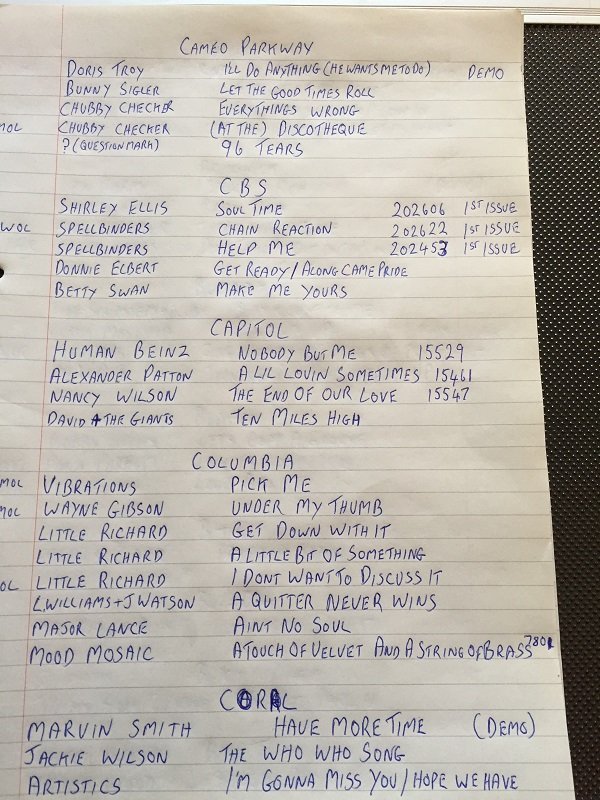 CAMEO PARKWAY
DORIS TROY I'LL DO ANYTHING (HE WANTS ME TO DO) DEMO
BUNNY SIGLER LET THE GOOD TIMES ROLL
CHUBBY CHECKER EVERYTHINGS WRONG
MOL CHUBBY CHECKER (AT THE) DISCOTHEQUE
? (QUESTION MARK) 96 TEARS
CBS
SHIRLEY ELLIS SOUL TIME 202606 1ST ISSUE
WOL SPELLBINDERS CHAIN REACTION 202622 1ST ISSUE
SPELLBINDERS HELP ME 202453 1ST ISSUE
DONNIE ELBERT GET READY / ALONG CAME PRIDE
BETTY SWAN MAKE ME YOURS
CAPITOL
HUMAN BEINZ NOBODY BUT ME 15529
ALEXANDER PATTON A LIL LOVIN SOMETIMES 15461
NANCY WILSON THE END OF OUR LOVE 15547
DAVID + THE GIANTS TEN MILES HIGH
COLUMBIA
MOL VIBRATIONS PICK ME
MOL WAYNE GIBSON UNDER MY THUMB
LITTLE RICHARD GET DOWN WITH IT
LITTLE RICHARD A LITTLE BIT OF SOMETHING
OL LITTLE RICHARD I DONT WANT TO DISCUSS IT
L.WILLIAMS + J WATSON A QUITTER NEVER WINS
MAJOR LANCE AINT NO SOUL
MOOD MOSAIC A TOUCH OF VELVET AND A STRING OF BRASS
CORAL
MARVIN SMITH HAVE MORE TIME (DEMO)
JACKIE WILSON THE WHO WHO SONG
ARTISTICS I'M GONNA MISS YOU / HOPE WE HAVE